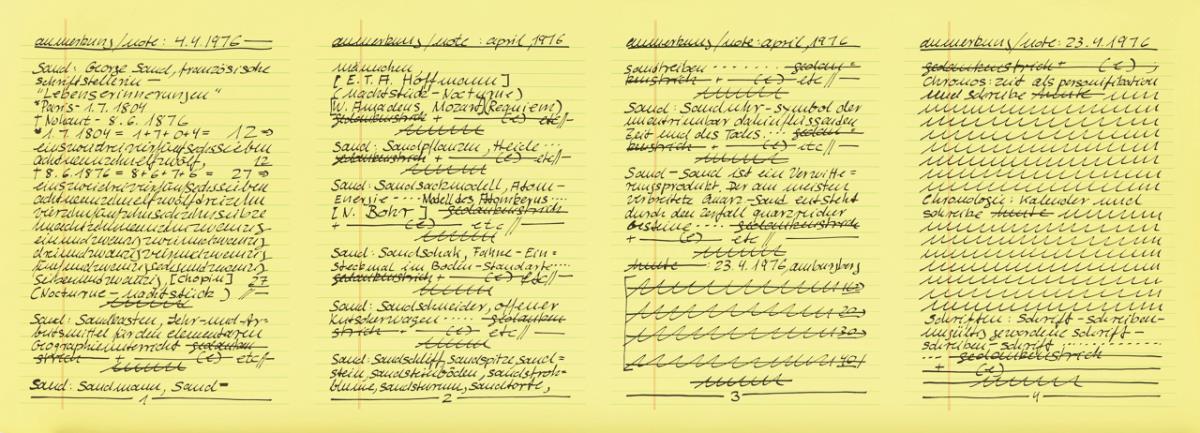 anmerkung/note: 4.4.1976
Sand: George Sand, französische
schriftstellerin —
"Lebenserinnerungen"
*Paris - 1.7.1804
† Nohant - 8.6.1876
* 1.7.1804 = 1+7+0+4 = 12 ⇒
einszweidreivierfünfsechssieben
achtneunzehnelfzwölf, 12
† 8.6.1876 = 8+6+7+6 = 27 ⇒
einszweidreivierfünfsechssieben
achtneunzehnelfzwölfdreizehn
vierzehnfünfzehnsechzehnsiebze
hnachtzehnneunzehnzwanzig
einundzwanzigzweiundzwanzig
dreiundzwanzigvierundzwanzig
fünfundzwanzigsechsundzwanzig
siebenundzwanzig, [Chopin] 27
(Nocturne - nachtstück) //—
Sand: Sandkasten, Lehr-und-Ar-
beitsmittel für den elementaren
Geographieunterricht gedanken
strich + — (e) — etc//—
Sand: Sandmann, Sand-
1
anmerkung/note: april, 1976
männchen
[E.T.A. Hoffmann]
(nachtstück - Nocturne)
[W. Amadeus, Mozart (Requiem)
gedankenstrich + — (e) — etc//—
Sand: Sandpflanzen, Heide ...
gedankenstrich + — (e) — etc//—
Sand: Sandsackmodell, Atom-
Energie ... Modell des Atomkerns ...
[N. Bohr] — gedankenstrich
+ — (e) — etc//—
Sand: Sandschak, Fahne - Ein-
steckmal im Boden - Standarte ...
gedankenstrich + — (e) — etc —
Sand: Sandschneider, offener
Kutscherwagen ... gedanken
strich — (e) — etc//—
Sand: Sandschliff, Sandspitze, Sand=
stein, sandsteinböden, sandstroh-
blume, sandsturm, sandtorte,
2
anmerkung/note: april, 1976
sandtreiben ... gedan=
kenstrich — (e) — etc //
Sand: Sanduhr - symbol der
unentrinnbar dahinfliessenden
Zeit und des Todes ... gedan=
kenstrich + — (e) — etc//—
Sand - Sand ist ein Verwitte=
rungsprodukt. Der am meisten
verbreitete Quarz-Sand entsteht
durch den Zerfall quarzreicher
Gesteine — gedankenstrich
+ — (e) — etc //—
heute — 23.4.1976,
10
20
30
40
3
anmerkung/note: 23.4.1976
gedankenstrich + — (e) —
Chronos: zeit als personifikation
und schreibe heute
Chronologie: Kalender und
schreibe heute
Schriften: Schrift - schreiben-
ungültig gewordene schrift -
schreiben - schrift ...
... gedankenstrich
+ (e)
4